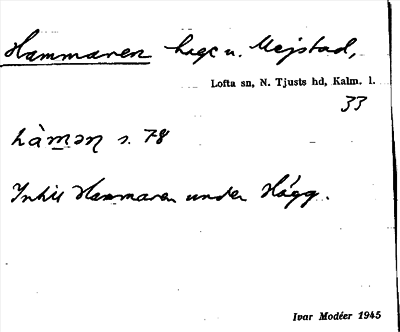 Hammaren hage u. Mejstad,
Lofta sn, N. Tjusts hd, Kalm. l.
33
hàmən s. 78
Inhit Hammaren under Hägg.
Ivar Modéer 1945